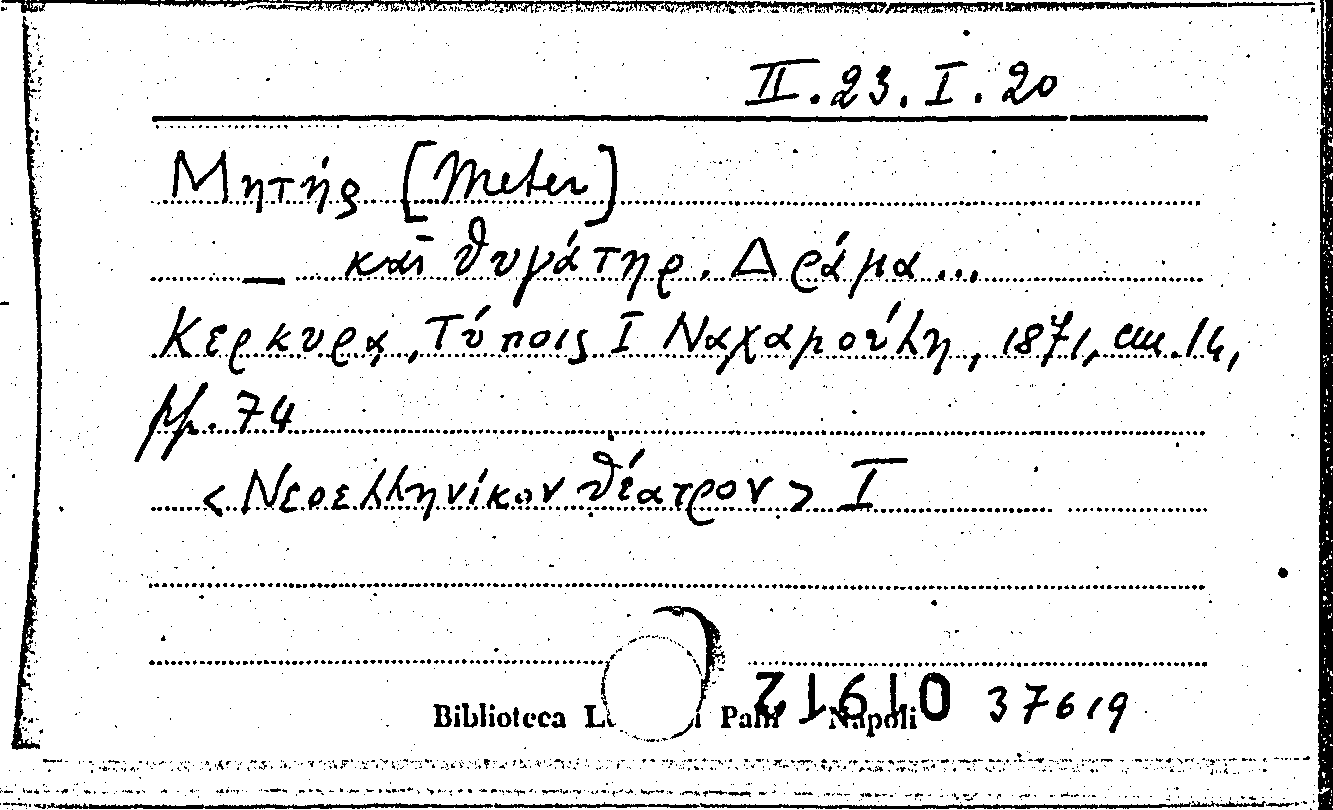 II.23.I.20
Μητήρ [Meter]
— καὶ θυγάτηρ. Δράμα...
Κερκυρα, Τύποις Ι Ναχαμούλη, 1871, cm. 14,
pp. 74
<Νεοελληνίκον θέατρον> I
Biblioteca Napoli 37619